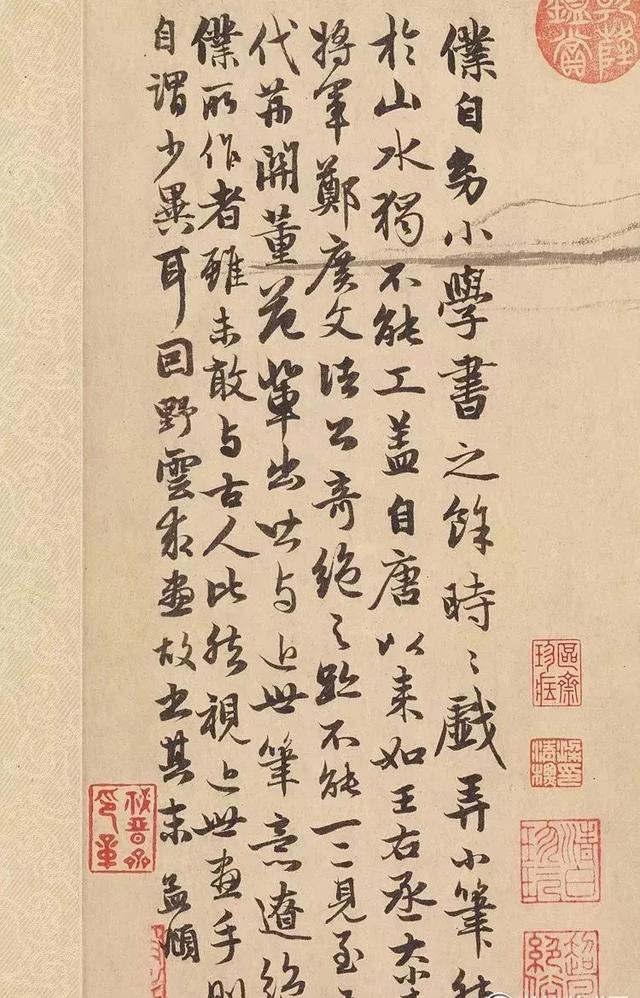 僕自幼小學書之餘時〻戲弄小筆然
於山水獨不能工蓋自唐以來如王右丞大
將軍鄭廣文諸公奇絕之跡不能一二見至
代荊關董范輩出皆與近世筆意遼絕
僕所作者雖未敢與古人比然視近世畫手則
自謂少異耳因野雲求畫故書其末 孟頫
乾隆鑑賞